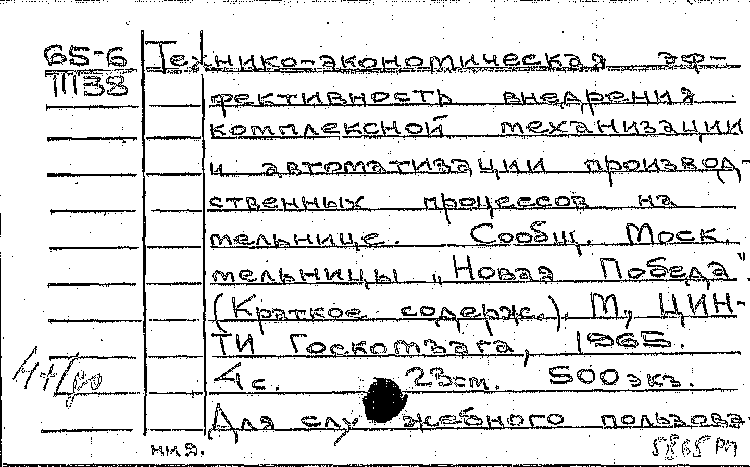 65-6 Технико-экономическая эф-
Т38 фективность внедрения
комплексной механизации
и автоматизации производ-
ственных процессов на
мельнице. Сообщ. Моск.
мельницы „Новая Победа".
(Краткое содерж.). М., ЦИН-
ТИ Госкомзага, 1965.
4 с. 23 см. 500 экз.
Для служебного пользова-
ния.
5865 РП